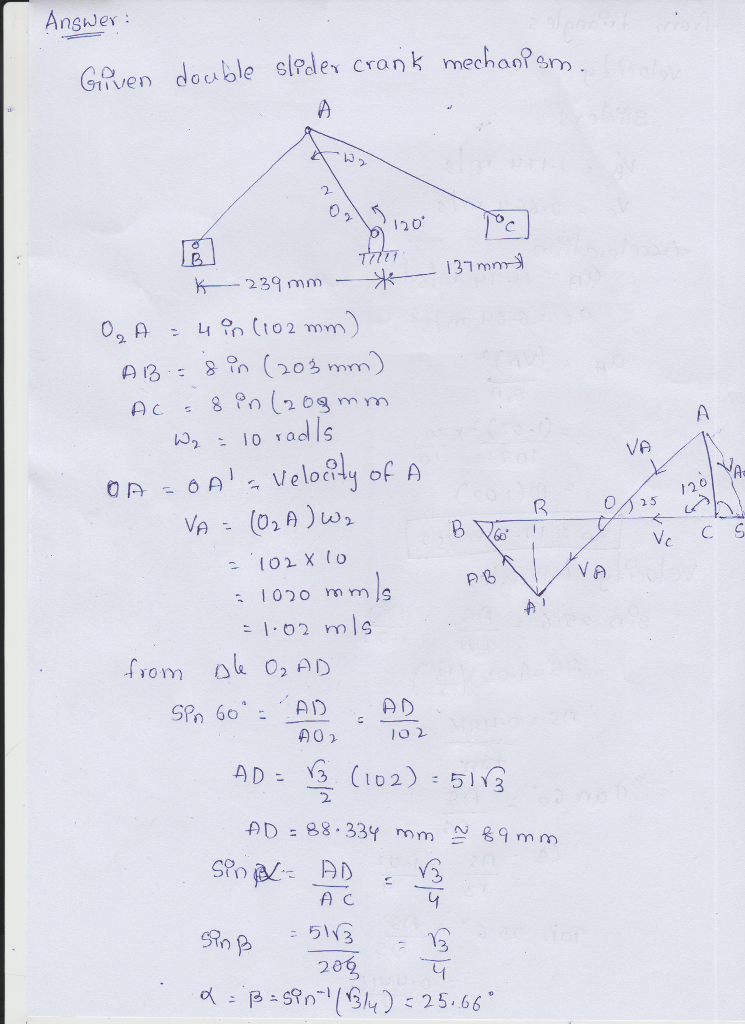 Answer:
Given double slider crank mechanism.
A
ω2
2
O2
120°
C
B
239 mm
137 mm
O2 A = 4 in (102 mm)
AB = 8 in (203 mm)
AC = 8 in (203 mm
ω2 = 10 rad/s
OA = OA' = Velocity of A
VA = (O2A) ω2
= 102 × 10
= 1020 mm/s
= 1.02 m/s
A
VA
120
O
25
R
B
60°
VC
C
S
AB
VA
A'
from Δle O2 AD
Sin 60° = AD/AO2 = AD/102
AD = √3/2 (102) = 51√3
AD = 88.334 mm ≅ 89 mm
Sin α = AD/AC = √3/4
Sin β = 51√3/203 = √3/4
α = β = sin⁻¹(√3/4) = 25.66°